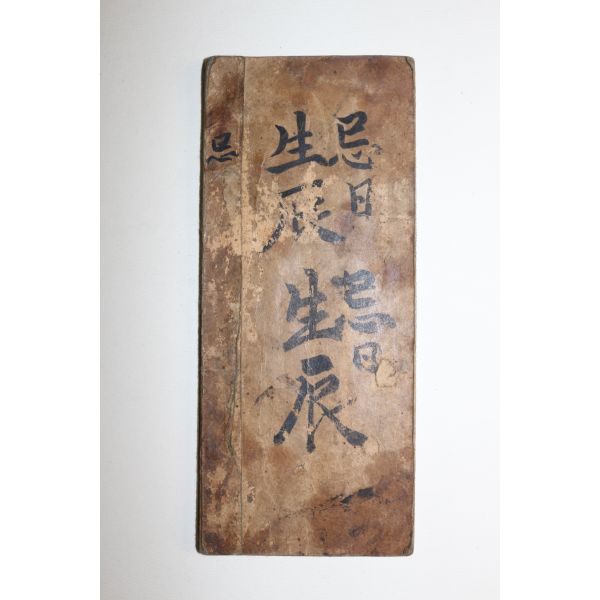 忌日
忌日
生辰
生辰
忌